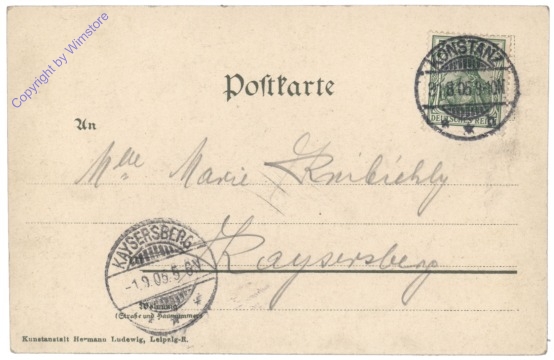 Copyright by Wimstore
Postkarte
KONSTANZ
31.8.05.9-10N
DEUTSCHES REICH
An
Mlle Marie
Kaysersberg
KAYSERSBERG
-1.9.05.5-6N
Wohnung
(Straße und Hausnummer)
Kunstanstalt Hermann Ludewig, Leipzig-R.